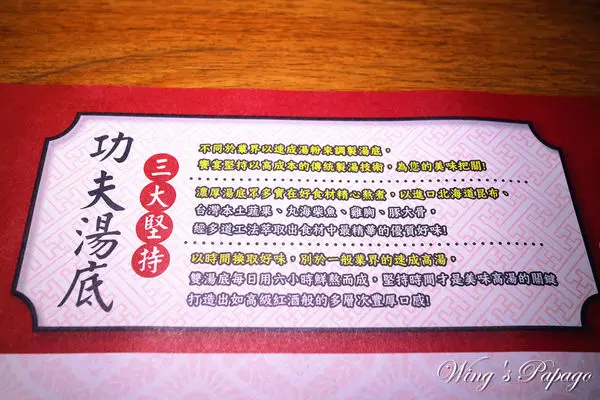 功夫湯底
三大堅持
不同於業界以速成湯粉來調製湯底，
饗宴堅持以高成本的傳統製湯技術，為您的美味把關!
濃厚湯底眾多實在好食材精心熬煮，以進口北海道昆布、
台灣本土蔬菜、丸海柴魚、雞胸、豚大骨，
經多道工法萃取出食材中最精華的優質好味!
以時間換取好味，別於一般業界的速成高湯，
雙湯底每日用六小時鮮熬而成，堅持時間才是美味高湯的關鍵
打造出如高級紅酒般的多層次豐厚口感!
Wing's Papago